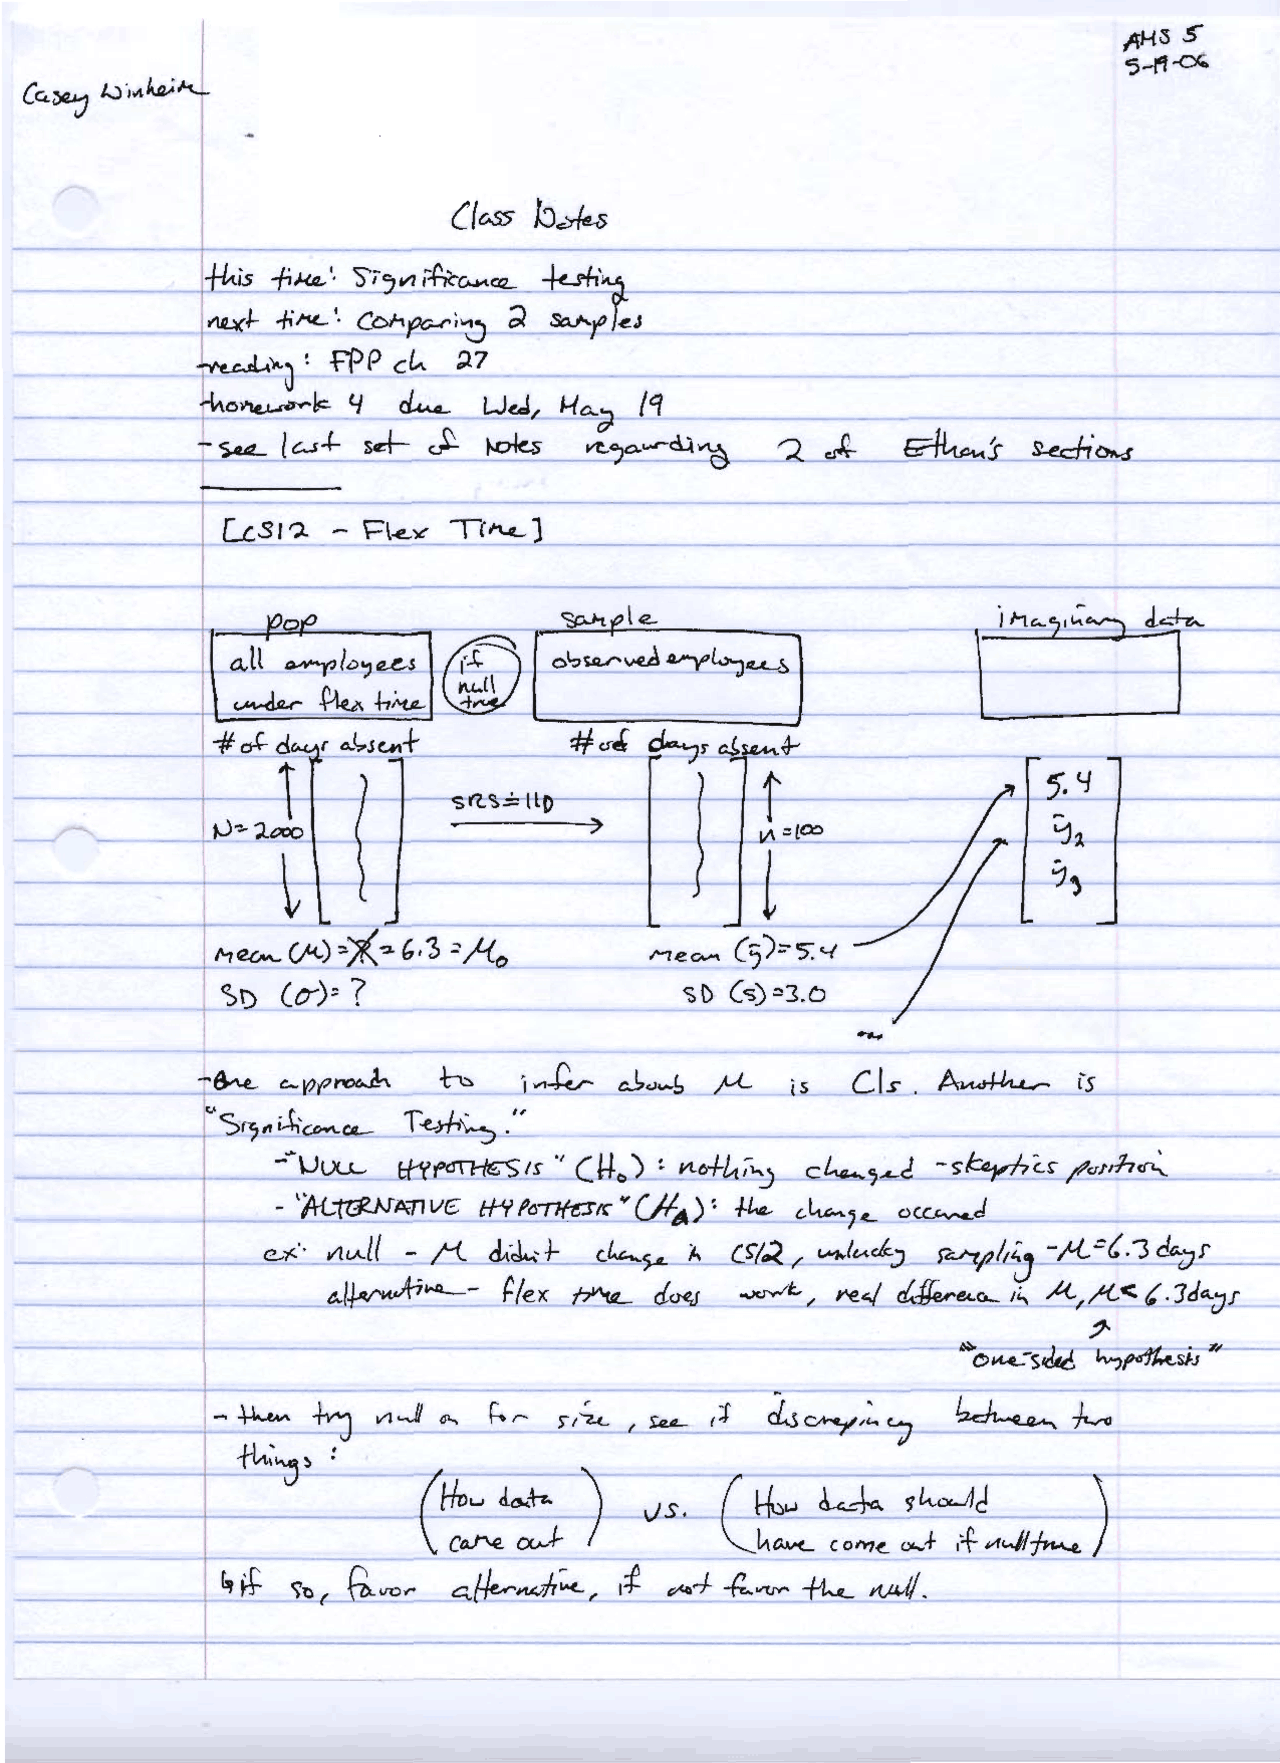 AMS 5
5-19-06
Casey Winheim
Class Notes
this time: Significance testing
next time: Comparing 2 samples
-reading: FPP ch 27
-homework 4 due Wed, May 19
-see last set of notes regaurding 2 of Ethan's sections
[CS12 - Flex Time]
pop sample imaginary data
all employees if observed employees
under flex time null true
# of days absent # of days absent
5.4
SRS≐IID
N=2000 n=100 ȳ2
ȳ3
mean (μ)=?=6.3=μ0 mean (ȳ)=5.4
SD (σ)=? SD (s)=3.0
...
-One approach to infer about μ is CIs. Another is
"Significance Testing."
-"NULL HYPOTHESIS" (H0): nothing changed -skeptics position
-"ALTERNATIVE HYPOTHESIS" (HA): the change occured
ex: null - μ didn't change in CS12, unlucky sampling -μ=6.3 days
alternative- flex time does work, real difference in μ, μ< 6.3 days
"one-sided hypothesis"
- then try null on for size, see if discrepincy between two
things:
(How data came out) vs. (How data should have come out if null true)
↳if so, favor alternative, if not favor the null.